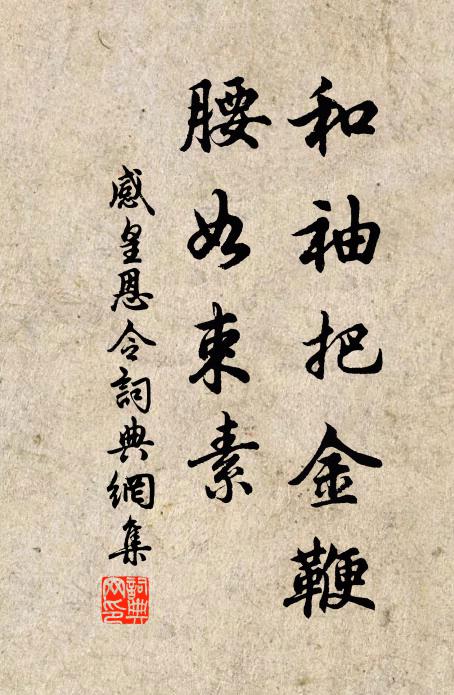 和袖把金鞭
腰如束素
感皇恩令詞典網集
詞典
网印